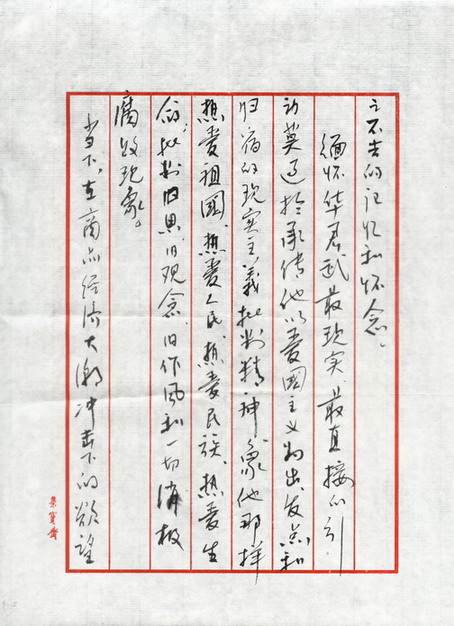 之不去的记忆和怀念。
缅怀华君武最现实、最直接的行
动莫过於承传他以爱國主义为出发点和
归宿的现实主義批判精神、象他那样
热爱祖國、热爱人民、热爱民族、热爱生
命；批判旧思、旧观念、旧作风和一切消极
腐败现象。
当下、在商品经济大潮冲击下的欲望
榮寶齋